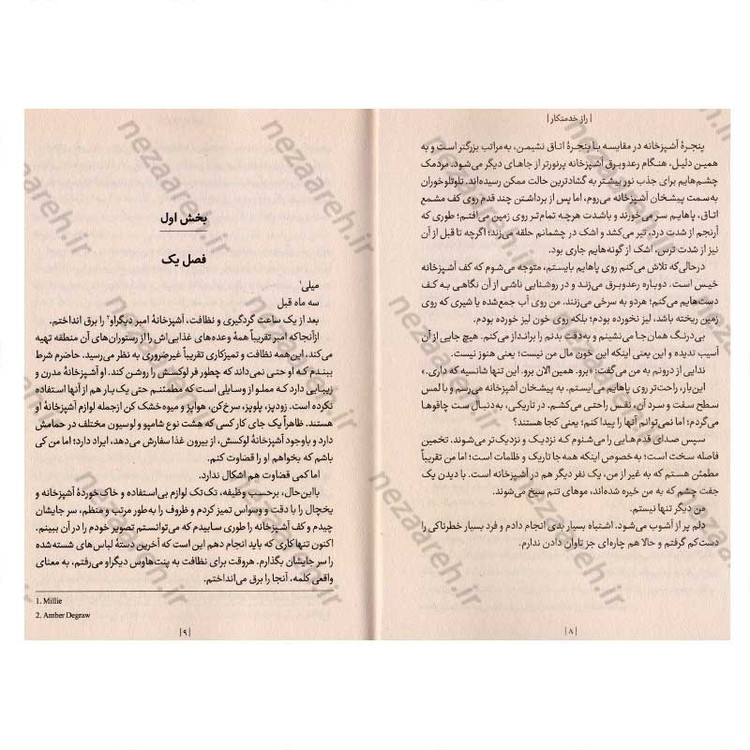 | راز خدمتکار |
پنجرهٔ آشپزخانه در مقایسه با پنجرهٔ اتاق نشیمن، به‌مراتب بزرگتر است و به
همین دلیل، هنگام رعدوبرق آشپزخانه پرنورتر از جاهای دیگر می‌شود. مردمک
چشم‌هایم برای جذب نور بیشتر به گشادترین حالت ممکن رسیده‌اند. تلوتلوخوران
به‌سمت پیشخان آشپزخانه می‌روم، اما پس از برداشتن چند قدم روی کف مشمع
اتاق، پاهایم سر می‌خورند و باشدت هرچه تمام‌تر روی زمین می‌افتم؛ طوری که
آرنجم از شدت درد، تیر می‌کشد و اشک در چشمانم حلقه می‌زند؛ اگرچه تا قبل از آن
نیز از شدت ترس، اشک از گونه‌هایم جاری بود.
درحالی‌که تلاش می‌کنم روی پاهایم بایستم، متوجه می‌شوم که کف آشپزخانه
خیس است. دوباره رعدوبرق می‌زند و در روشنایی ناشی از آن نگاهی به کف
دست‌هایم می‌کنم؛ هردو به سرخی می‌زنند. من روی آب جمع‌شده یا شیری که روی
زمین ریخته باشد، لیز نخورده بودم؛ بلکه روی خون لیز خورده بودم.
بی‌درنگ همان‌جا می‌نشینم و به‌دقت بدنم را برانداز می‌کنم. هیچ جایی از آن
آسیب ندیده و این یعنی اینکه این خون مال من نیست؛ یعنی هنوز نیست.
ندایی از درونم به من می‌گفت: «برو. همین الان برو. این تنها شانسیه که داری.»
این‌بار، راحت‌تر روی پاهایم می‌ایستم، به پیشخان آشپزخانه می‌رسم و با لمس
سطح سفت و سرد آن، نفس راحتی می‌کشم. در تاریکی، به‌دنبال ست چاقوها
می‌گردم؛ اما نمی‌توانم آنها را پیدا کنم؛ یعنی کجا هستند؟
سپس صدای قدم‌هایی را می‌شنوم که نزدیک و نزدیک‌تر می‌شوند. تخمین
فاصله سخت است؛ به‌خصوص اینکه همه‌جا تاریک و ظلمات است؛ اما من تقریباً
مطمئن هستم که به غیر از من، یک نفر دیگر هم در آشپزخانه است. با دیدن یک
جفت چشم که به من خیره شده‌اند، موهای تنم سیخ می‌شوند.
من دیگر تنها نیستم.
دلم پر از آشوب می‌شود. اشتباه بسیار بدی انجام دادم و فرد بسیار خطرناکی را
دست‌کم گرفتم و حالا هم چاره‌ای جز تاوان دادن ندارم.
| ۸ |
بخش اول
فصل یک
میلی¹
سه ماه قبل
بعد از یک ساعت گردگیری و نظافت، آشپزخانهٔ امبر دیگراو² را برق انداختم.
ازآنجاکه امبر تقریباً همهٔ وعده‌های غذایی‌اش را از رستوران‌های آن منطقه تهیه
می‌کند، این‌همه نظافت و تمیزکاری تقریباً غیرضروری به نظر می‌رسید. حاضرم شرط
ببندم که او حتی نمی‌داند که چطور فر لوکسش را روشن کند. او آشپزخانهٔ مدرن و
زیبایی دارد که مملو از وسایلی است که مطمئنم حتی یک‌بار هم از آنها استفاده
نکرده است. زودپز، پلوپز، سرخ‌کن، هواپز و میوه‌خشک کن ازجمله لوازم آشپزخانهٔ او
هستند. ظاهراً یک جای کار کسی که هشت نوع شامپو و لوسیون مختلف در حمامش
دارد و باوجود آشپزخانهٔ لوکسش، از بیرون غذا سفارش می‌دهد، ایراد دارد؛ اما من کی
باشم که بخواهم او را قضاوت کنم.
اما کمی قضاوت هم اشکال ندارد.
بااین‌حال، برحسب وظیفه، تک‌تک لوازم بی‌استفاده و خاک‌خوردهٔ آشپزخانه و
یخچال را با دقت و وسواس تمیز کردم و ظروف را به‌طور مرتب و منظم، سر جایشان
چیدم و کف آشپزخانه را طوری سابیدم که می‌توانستم تصویر خودم را در آن ببینم.
اکنون تنها کاری که باید انجام دهم این است که آخرین دستهٔ لباس‌های شسته‌شده
را سر جایشان بگذارم. هروقت برای نظافت به پنت‌هاوس دیگراو می‌رفتم، به معنای
واقعی کلمه، آنجا را برق می‌انداختم.
1. Millie
2. Amber Degraw
| ۹ |
nezaareh.ir